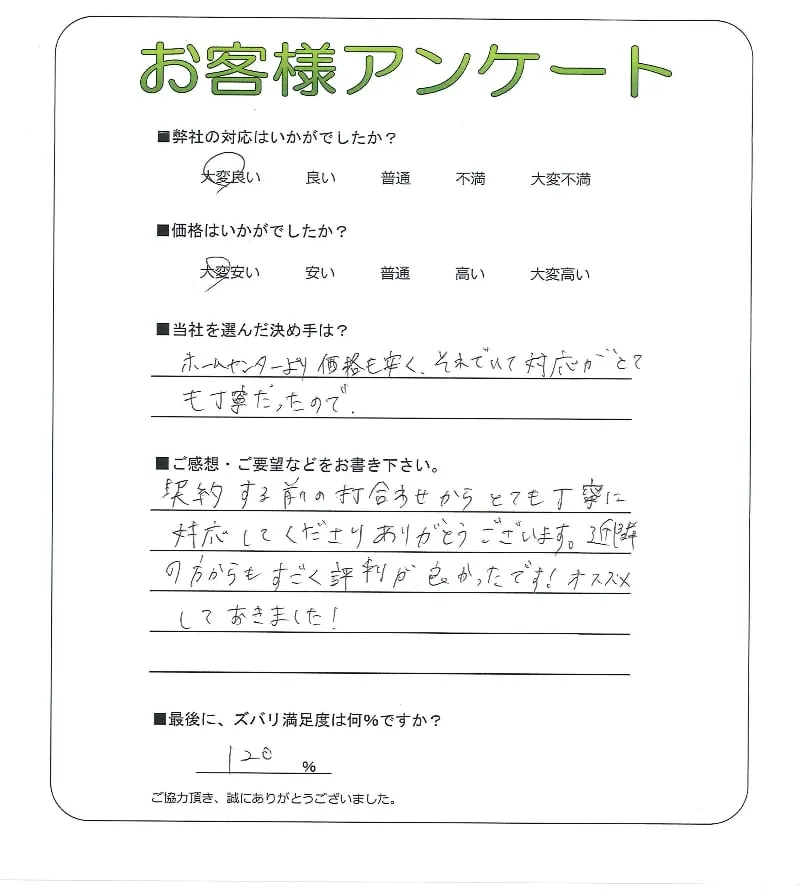 お客様アンケート
■弊社の対応はいかがでしたか？
大変良い 良い 普通 不満 大変不満
■価格はいかがでしたか？
大変安い 安い 普通 高い 大変高い
■当社を選んだ決め手は？
ホームセンターより価格も安く、それでいて対応がとて
も丁寧だったので.
■ご感想・ご要望などをお書き下さい。
契約する前の打合わせからとても丁寧に
対応してくださりありがとうございます。近隣
の方からもすごく評判が良かったです！オススメ
しておきました！
■最後に、ズバリ満足度は何%ですか？
120 %
ご協力頂き、誠にありがとうございました。